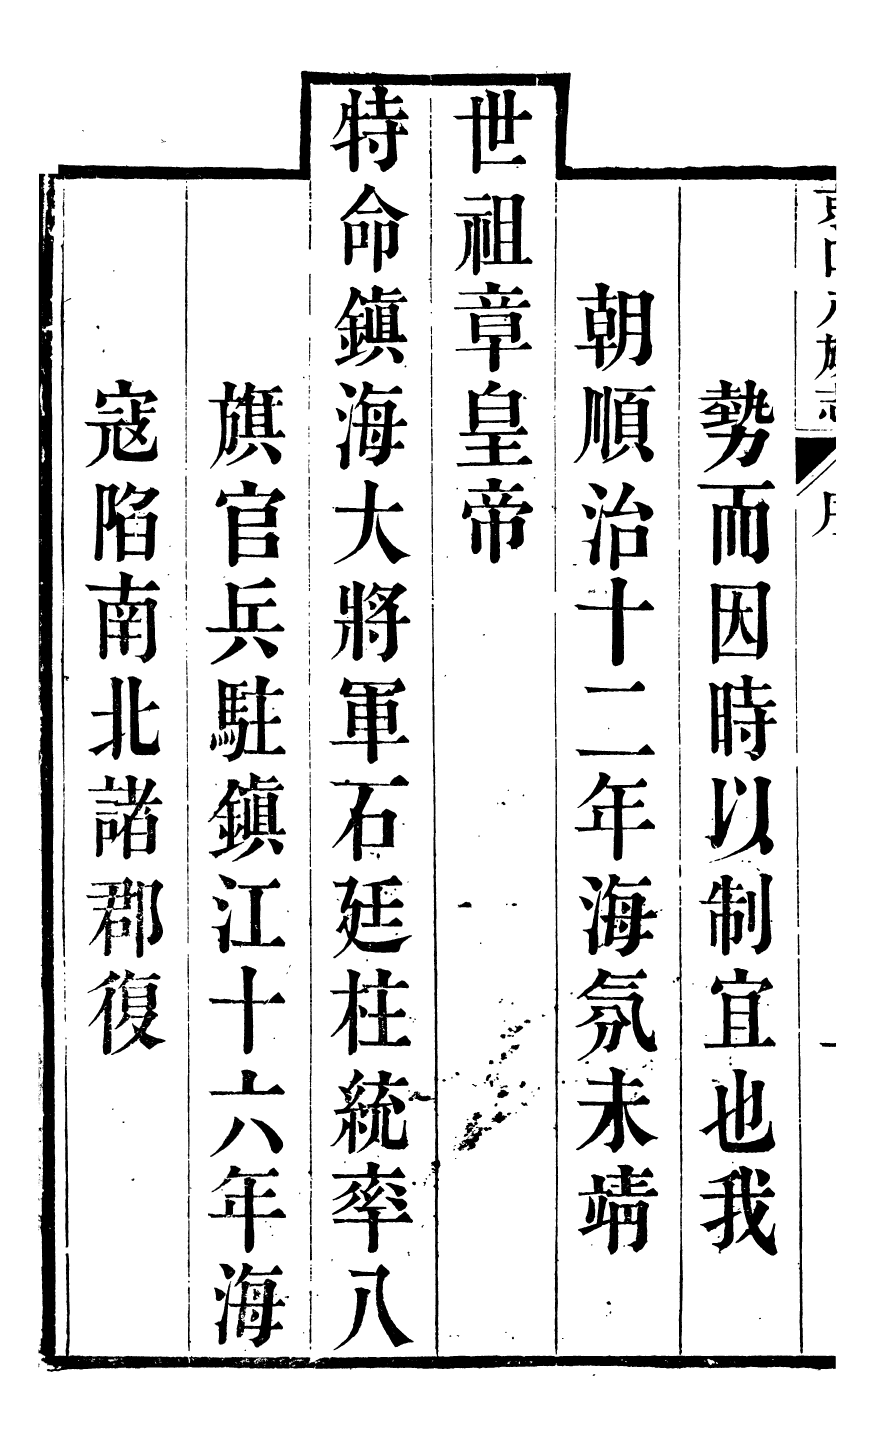 勢而因時以制宜也我
朝順治十二年海氛未靖
世祖章皇帝
特命鎮海大將軍石廷柱統率八
旗官兵駐鎮江十六年海
寇陷南北諸郡復